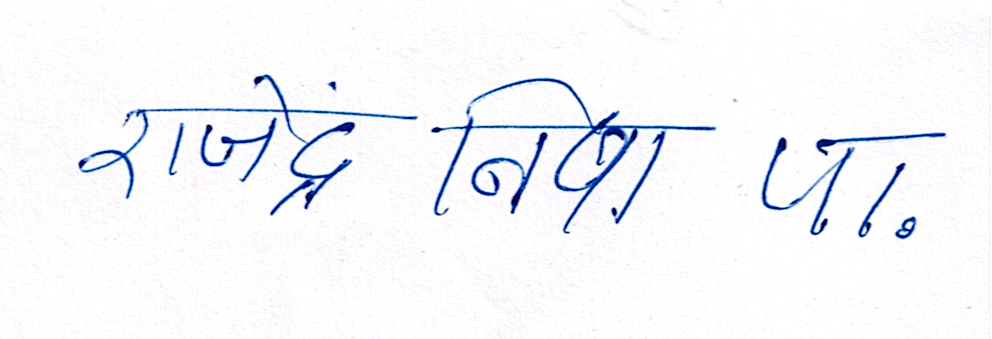 राजेंद्र निषा पा.